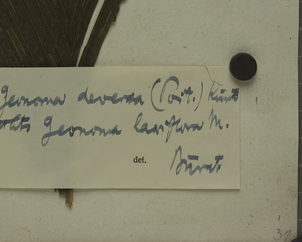 Geonoma deversa (Poit.) Kunth
Geonoma laxiflora M.
det. Burret.